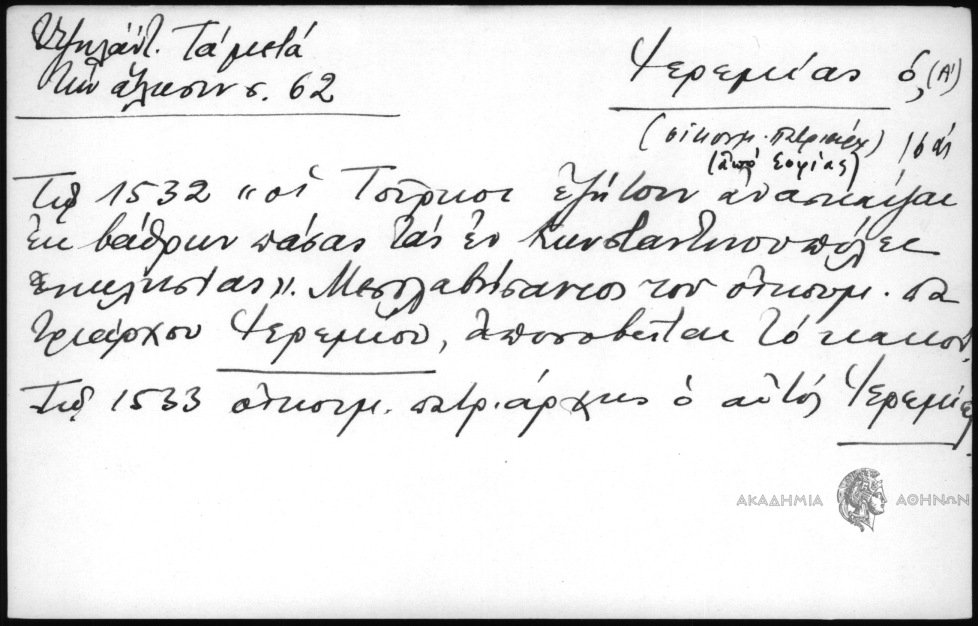 Ὑψηλάντ. Τά μετά
τήν ἅλωσιν σ. 62
Ἱερεμίας ὁ, (Α')
(οἰκουμ. πατριάρχ)
(ἀπό Σοφίας)
Τῷ 1532 "οἱ Τοῦρκοι ἐζήτουν ἀνασκάψαι
ἐκ βάθρων πάσας τάς ἐν Κωνσταντινουπόλει
ἐκκλησίας". Μεσολαβήσαντος τοῦ οἰκουμ. πα
τριάρχου Ἱερεμίου, ἀποσοβεῖται τό κακόν.
Τῷ 1533 οἰκουμ. πατριάρχης ὁ αὐτός Ἱερεμίας.
ΑΚΑΔΗΜΙΑ ΑΘΗΝΩΝ